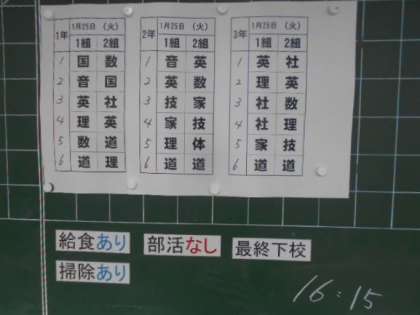 1年 1月25日 (火)
1組 2組
1 国 数
2 音 国
3 英 社
4 理 英
5 数 道
6 道 理
2年 1月25日 (火)
1組 2組
1 音 英
2 英 数
3 技 家
4 家 技
5 理 体
6 道 道
3年 1月25日 (火)
1組 2組
1 英 社
2 理 英
3 社 数
4 社 理
5 家 技
6 道 道
給食あり 部活なし 最終下校
掃除あり 16:15